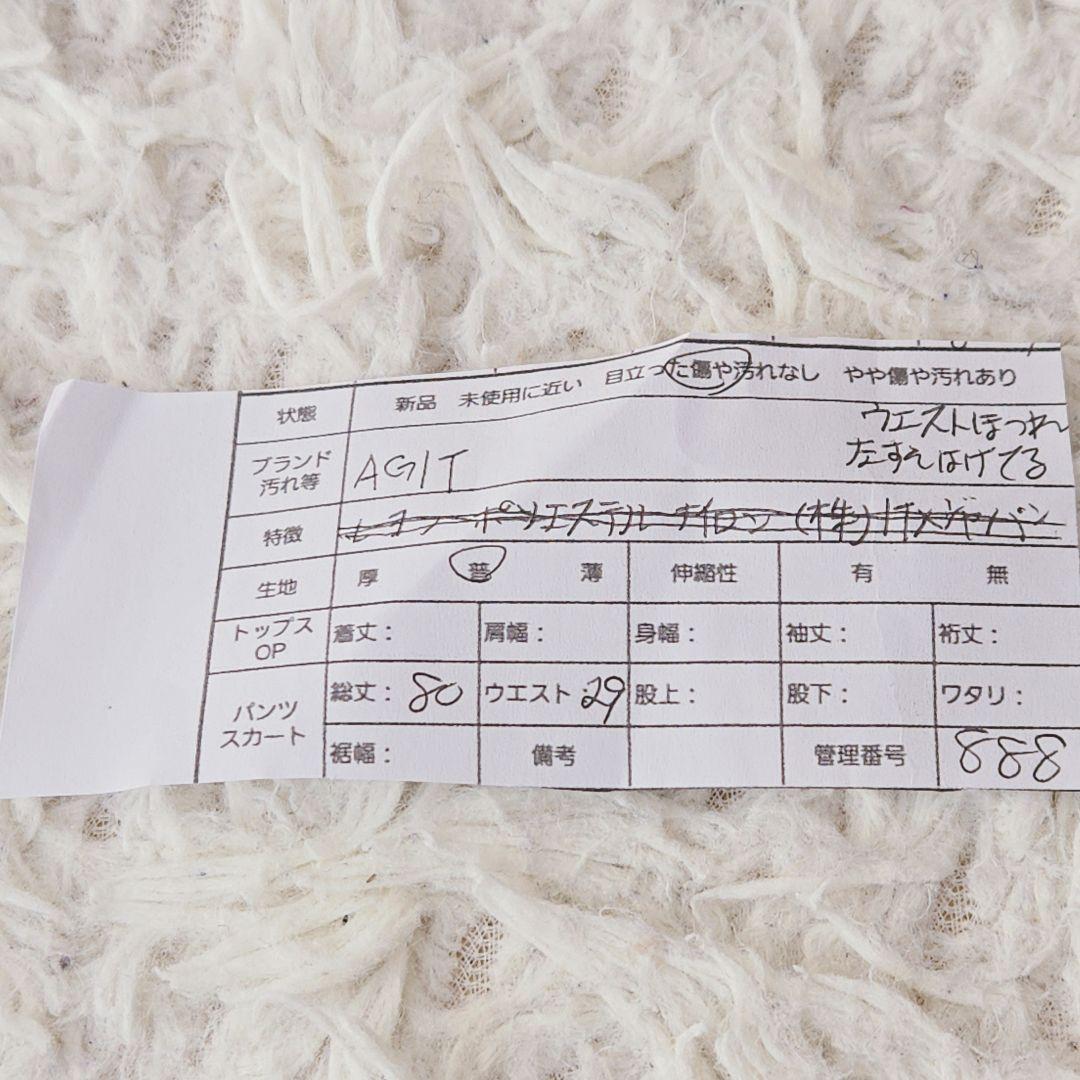 状態 新品 未使用に近い 目立った傷や汚れなし やや傷や汚れあり
ウエストほつれ
ブランド 汚れ等 AGIT 左すそはげてる
特徴 レーヨン ポリエステル ナイロン (株)
生地 厚 普 薄 伸縮性 有 無
トップス OP 着丈： 肩幅： 身幅： 袖丈： 裄丈：
パンツ スカート 総丈：80 ウエスト：29 股上： 股下： ワタリ：
裾幅： 備考 管理番号 888